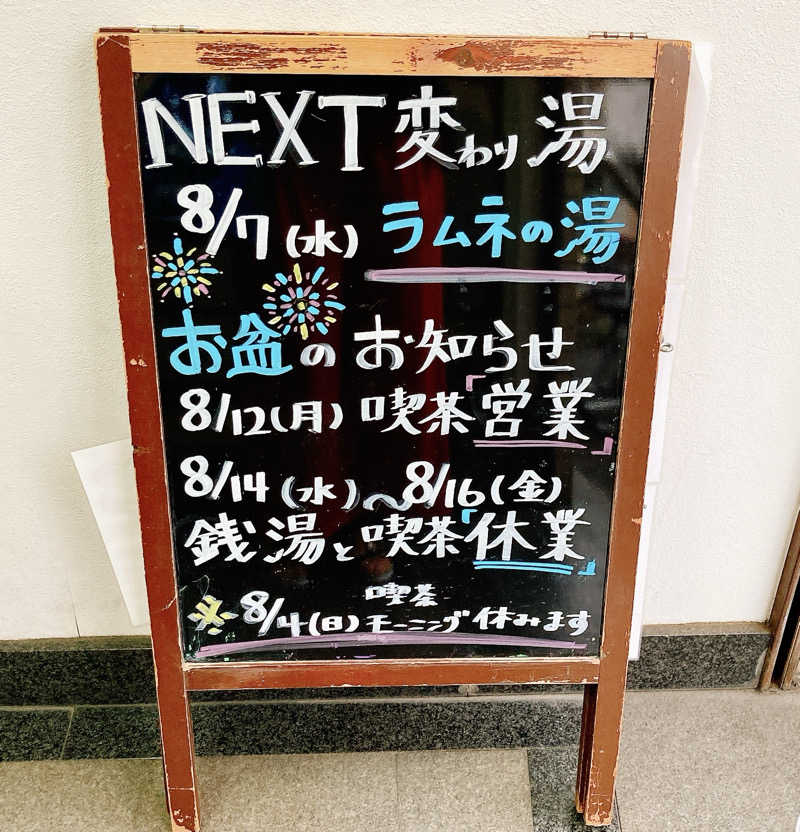 NEXT 変わり湯
8/7(水) ラムネの湯
お盆のお知らせ
8/12(月) 喫茶「営業」
8/14(水)〜8/16(金)
銭湯と喫茶「休業」
喫茶
※8/4(日)モーニング休みます